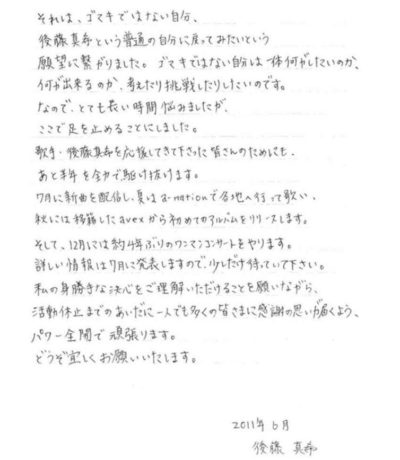 それは、ゴマキではない自分、
後藤真希という普通の自分に戻ってみたいという
願望に繋がりました。ゴマキではない自分は一体何がしたいのか、
何が出来るのか、考えたり挑戦したりしたいのです。
なので、とても長い時間悩みましたが、
ここで足を止めることにしました。
歌手・後藤真希を応援してきて下さった皆さんのためにも、
あと半年を全力で駆け抜けます。
7月に新曲を配信し、夏はa-nationで各地へ行って歌い、
秋には移籍したavexから初めてのアルバムをリリースします。
そして、12月には約4年ぶりのワンマンコンサートをやります。
詳しい情報は7月に発表しますので、少しだけ待っていて下さい。
私の身勝手な決心をご理解いただけることを願いながら、
活動休止までのあいだに一人でも多くの皆さまに感謝の思いが届くよう、
パワー全開で頑張ります。
どうぞ宜しくお願いいたします。
2011年6月
後藤 真希